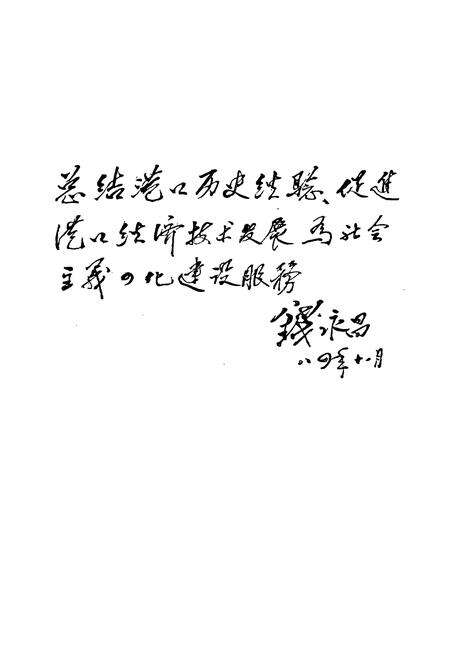 总结港口历史经验、促進
港口经济技术发展为社会
主義四化建设服務
錢永昌
八四年十一月